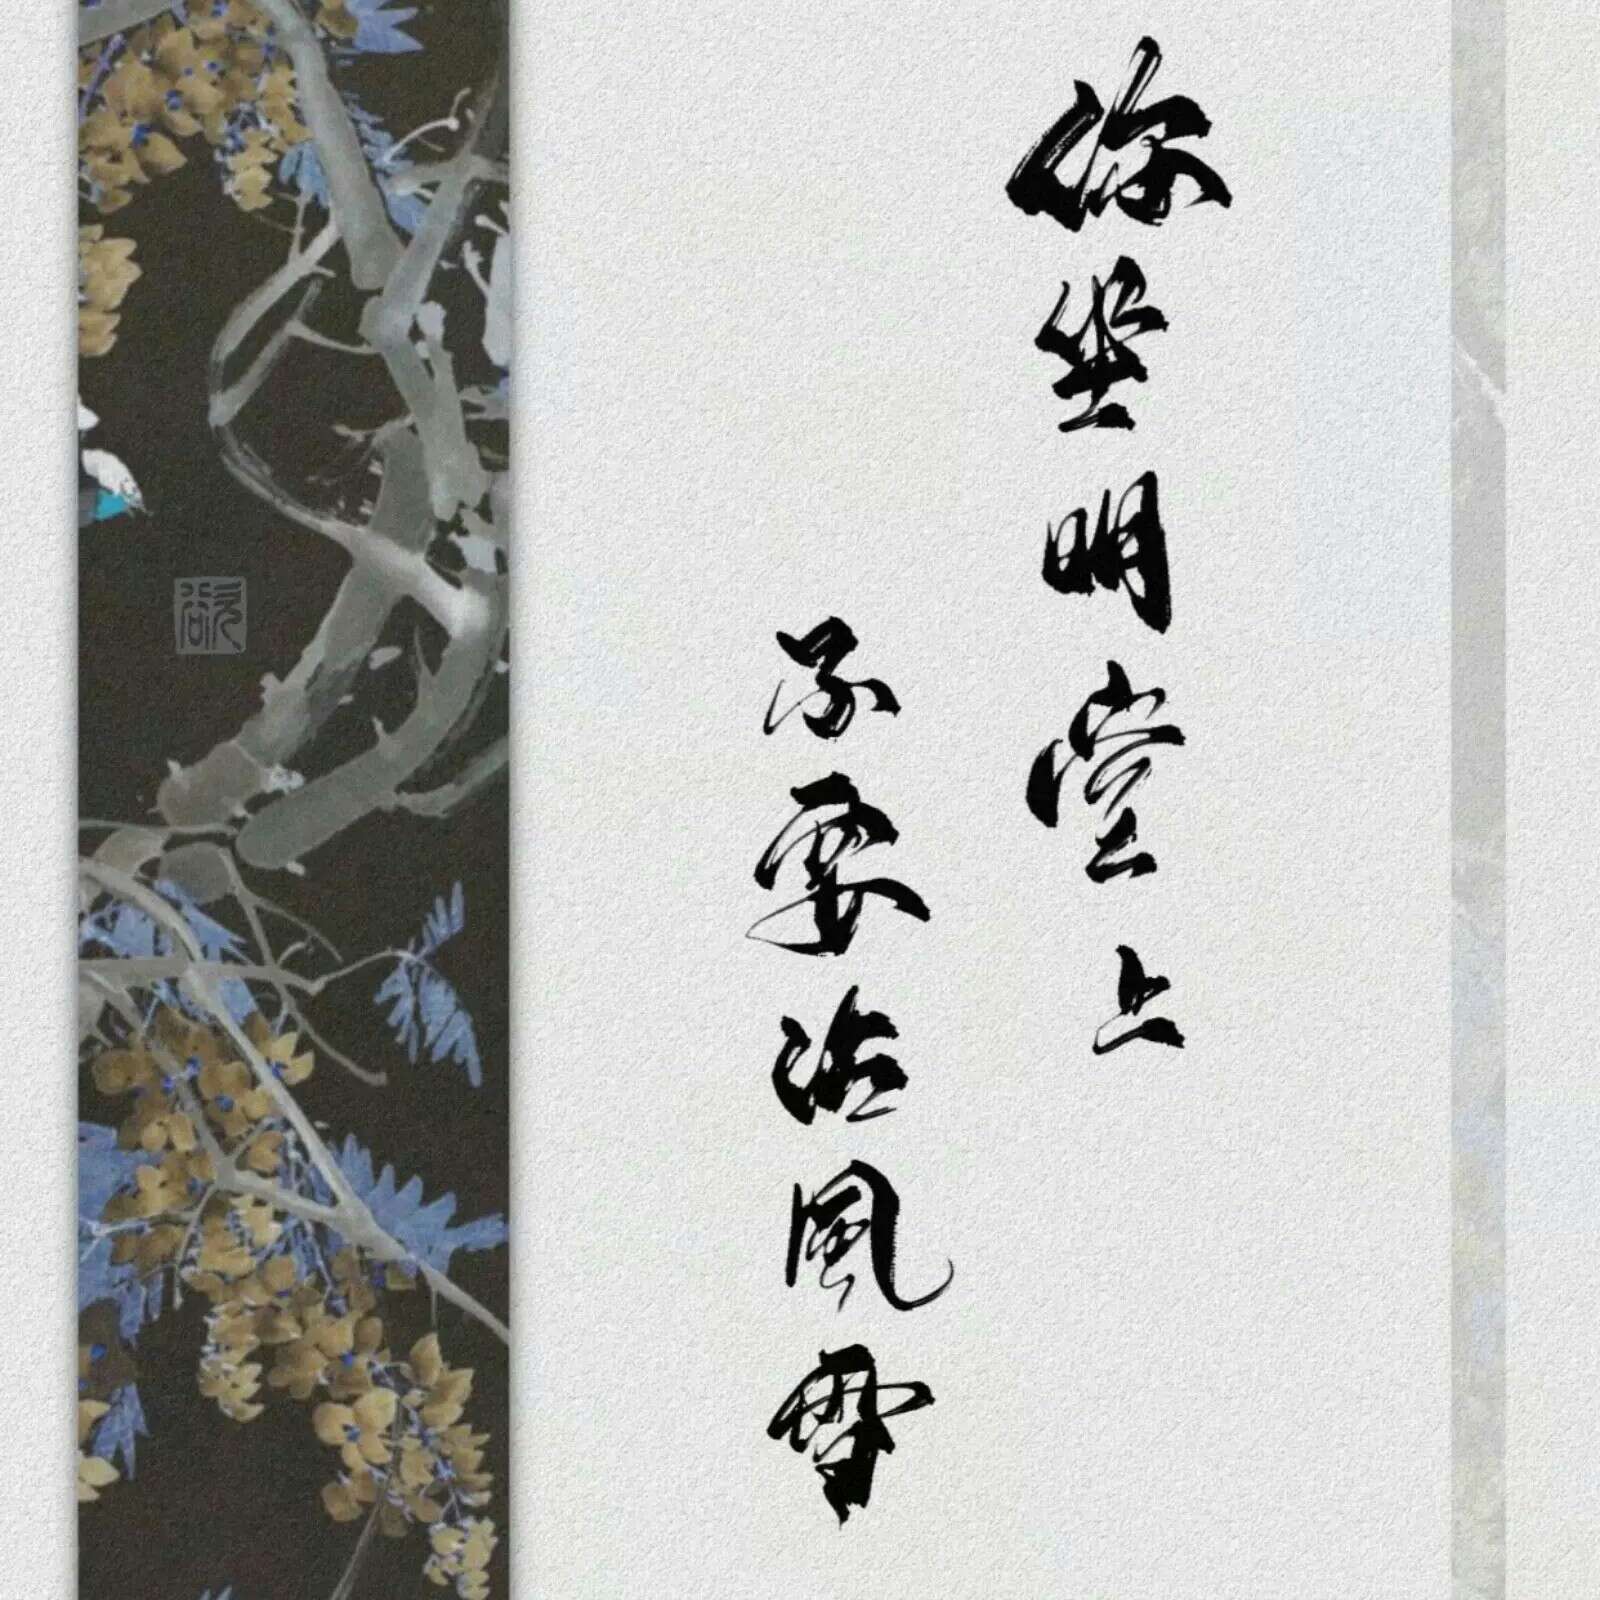 你坐明堂上
不要沾風雪